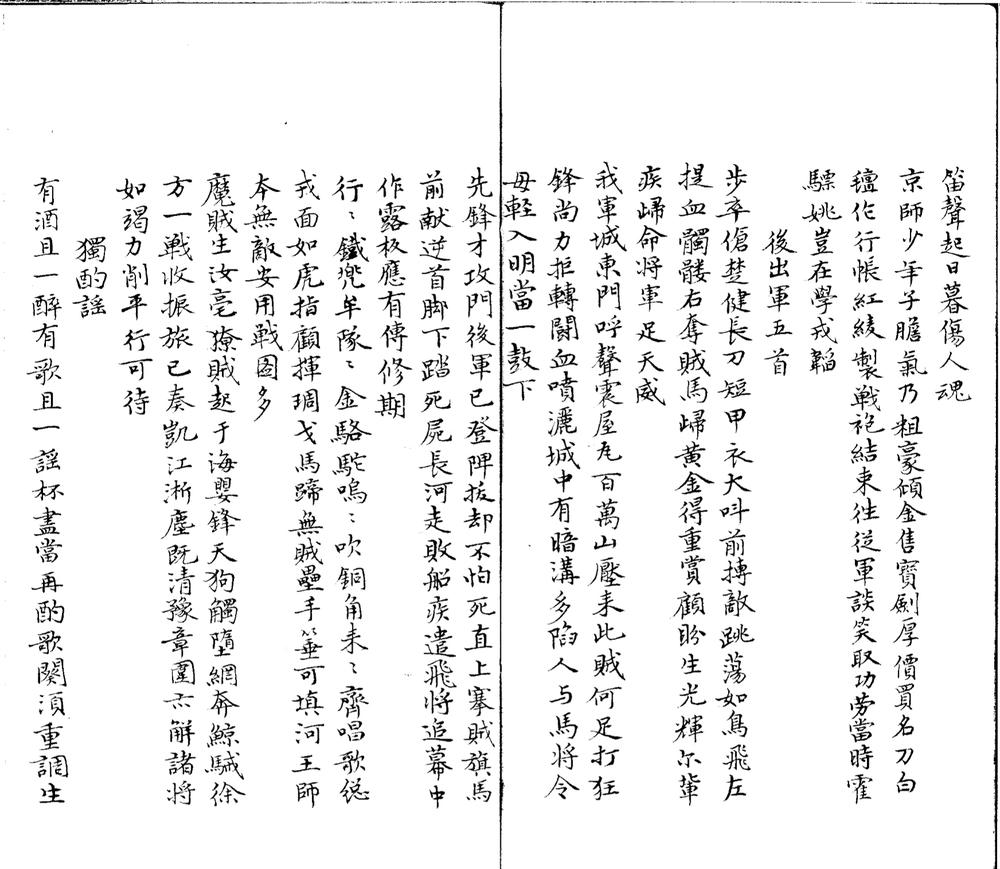 笛聲起日暮傷人魂
京師少年子膽氣乃粗豪傾金售寶劍厚價買名刀白
氊作行帳紅綾製戦袍結束徃従軍談笑取功勞當時霍
驃姚豈在學戎韜
後出軍五首
步卒傖楚健長刀短甲衣大呌前搏敵跳蕩如鳥飛左
提血髑髏右奪賊馬歸黄金得重賞顧盼生光輝尓軰
疾歸命将軍足天威
我軍城東門呼聲震屋瓦百萬山壓来此賊何足打狂
鋒尚力拒轉鬬血噴灑城中有暗溝多陷人与馬将令
毋輕入明當一鼓下
先鋒才攻門後軍已登陴拔却不怕死直上搴賊旗馬
前献逆首脚下踏死屍長河走敗船疾遣飛将追幕中
作露布應有傳修期
行〻鐵兠牟隊〻金駱駝嗚〻吹銅角来〻齊唱歌総
戎面如虎指顧揮琱戈馬蹄無賊壘手箠可填河王師
本無敵安用戦图多
魔賊生汝亳獠賊起于海嬰鋒天狗觸墮網奔鯨駴徐
方一戦收振旅已奏凱江淅塵既清豫章圍亦解諸将
如竭力削平行可待
獨酌謡
有酒且一醉有歌且一謡杯盡當再酌歌闋須重調生